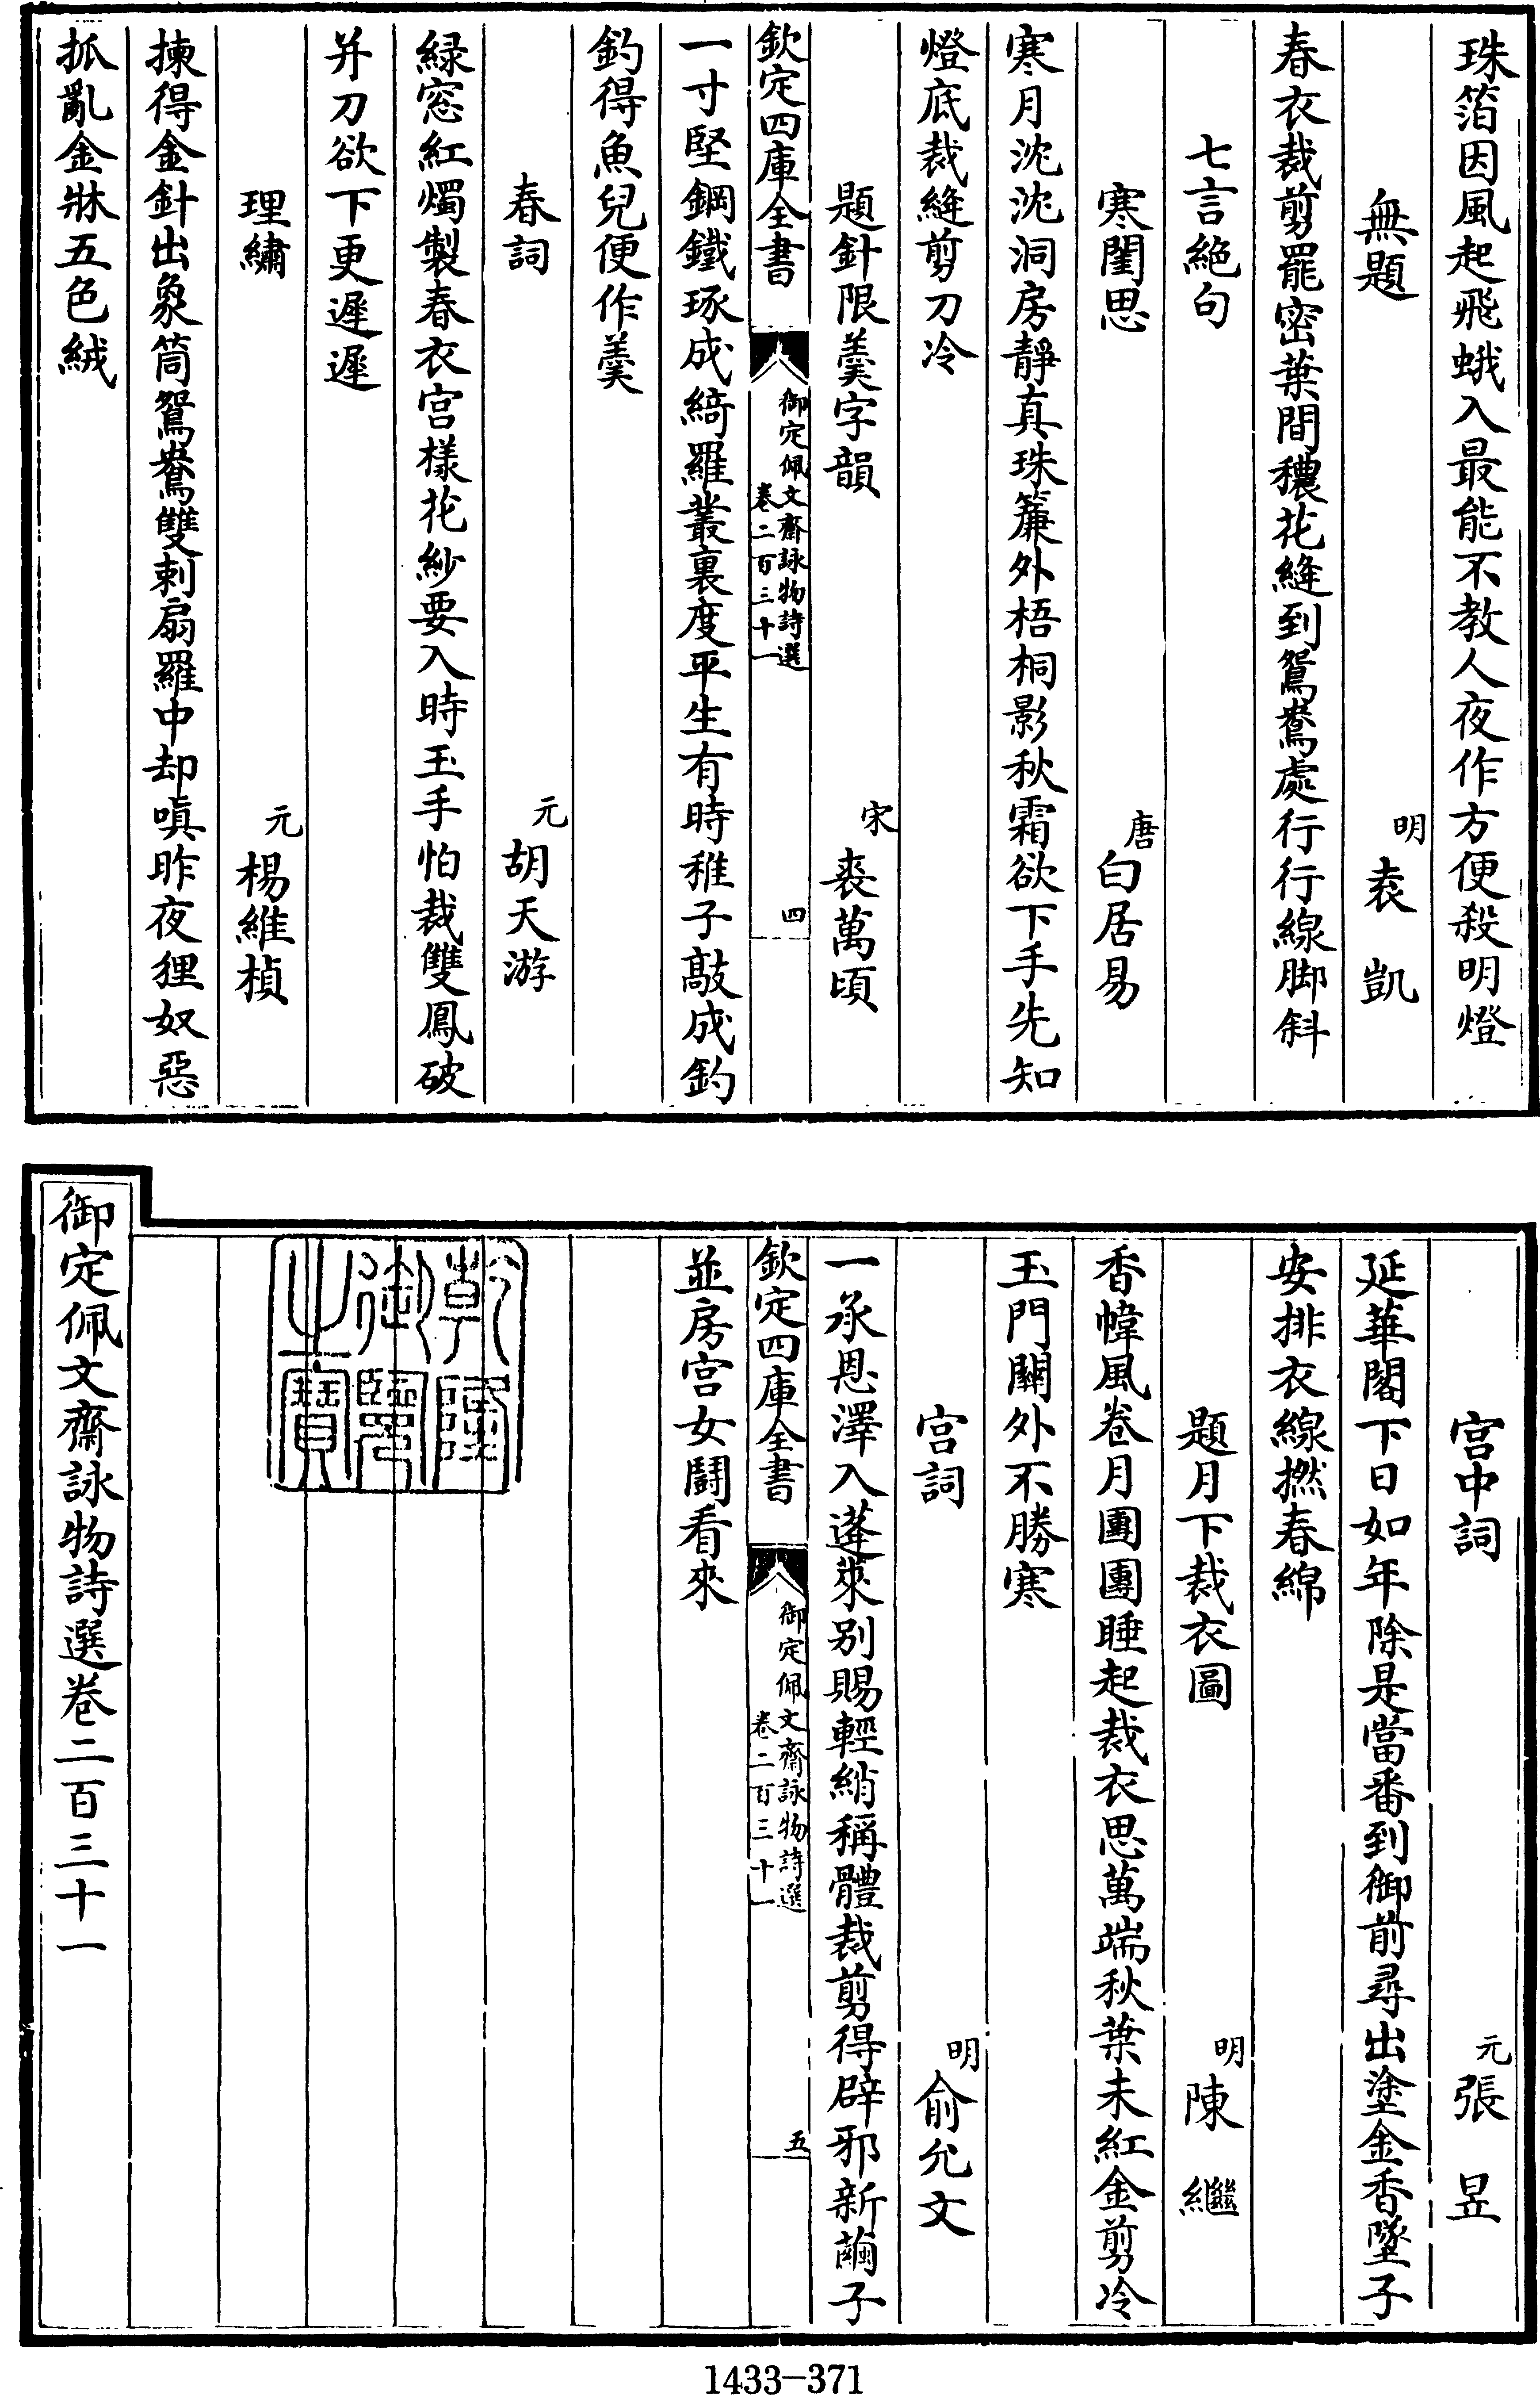 珠箔因風起飛蛾入最能不教人夜作方便殺明燈
無題
明
袁凱
春衣裁剪罷密葉間穠花縫到鴛鴦處行行線脚斜
七言絶句
寒閨思
唐
白居易
寒月沈沈洞房靜真珠簾外梧桐影秋霜欲下手先知
燈底裁縫剪刀冷
題針限羹字韻
宋
裘萬頃
欽定四庫全書
御定佩文齋詠物詩選
卷二百三十一
四
一寸堅鋼鐵琢成綺羅叢裏度平生有時稚子敲成釣
釣得魚兒便作羹
春詞
元
胡天游
緑窓紅燭製春衣宫樣花紗要入時玉手怕裁雙鳳破
并刀欲下更遲遲
理繡
元
楊維楨
揀得金針出象筒鴛鴦雙刺扇羅中却嗔昨夜狸奴惡
抓亂金牀五色絨
宫中詞
元
張昱
延華閣下日如年除是當番到御前尋出塗金香墜子
安排衣線撚春綿
題月下裁衣圖
明
陳繼
香幃風卷月團團睡起裁衣思萬端秋葉未紅金剪冷
玉門關外不勝寒
宫詞
明
俞允文
一承恩澤入蓬萊别賜輕綃稱體裁剪得辟邪新繭子
欽定四庫全書
御定佩文齋詠物詩選
卷二百三十一
五
並房宫女鬪看來
乾隆
御覽
之寶
御定佩文齋詠物詩選卷二百三十一
1433-371